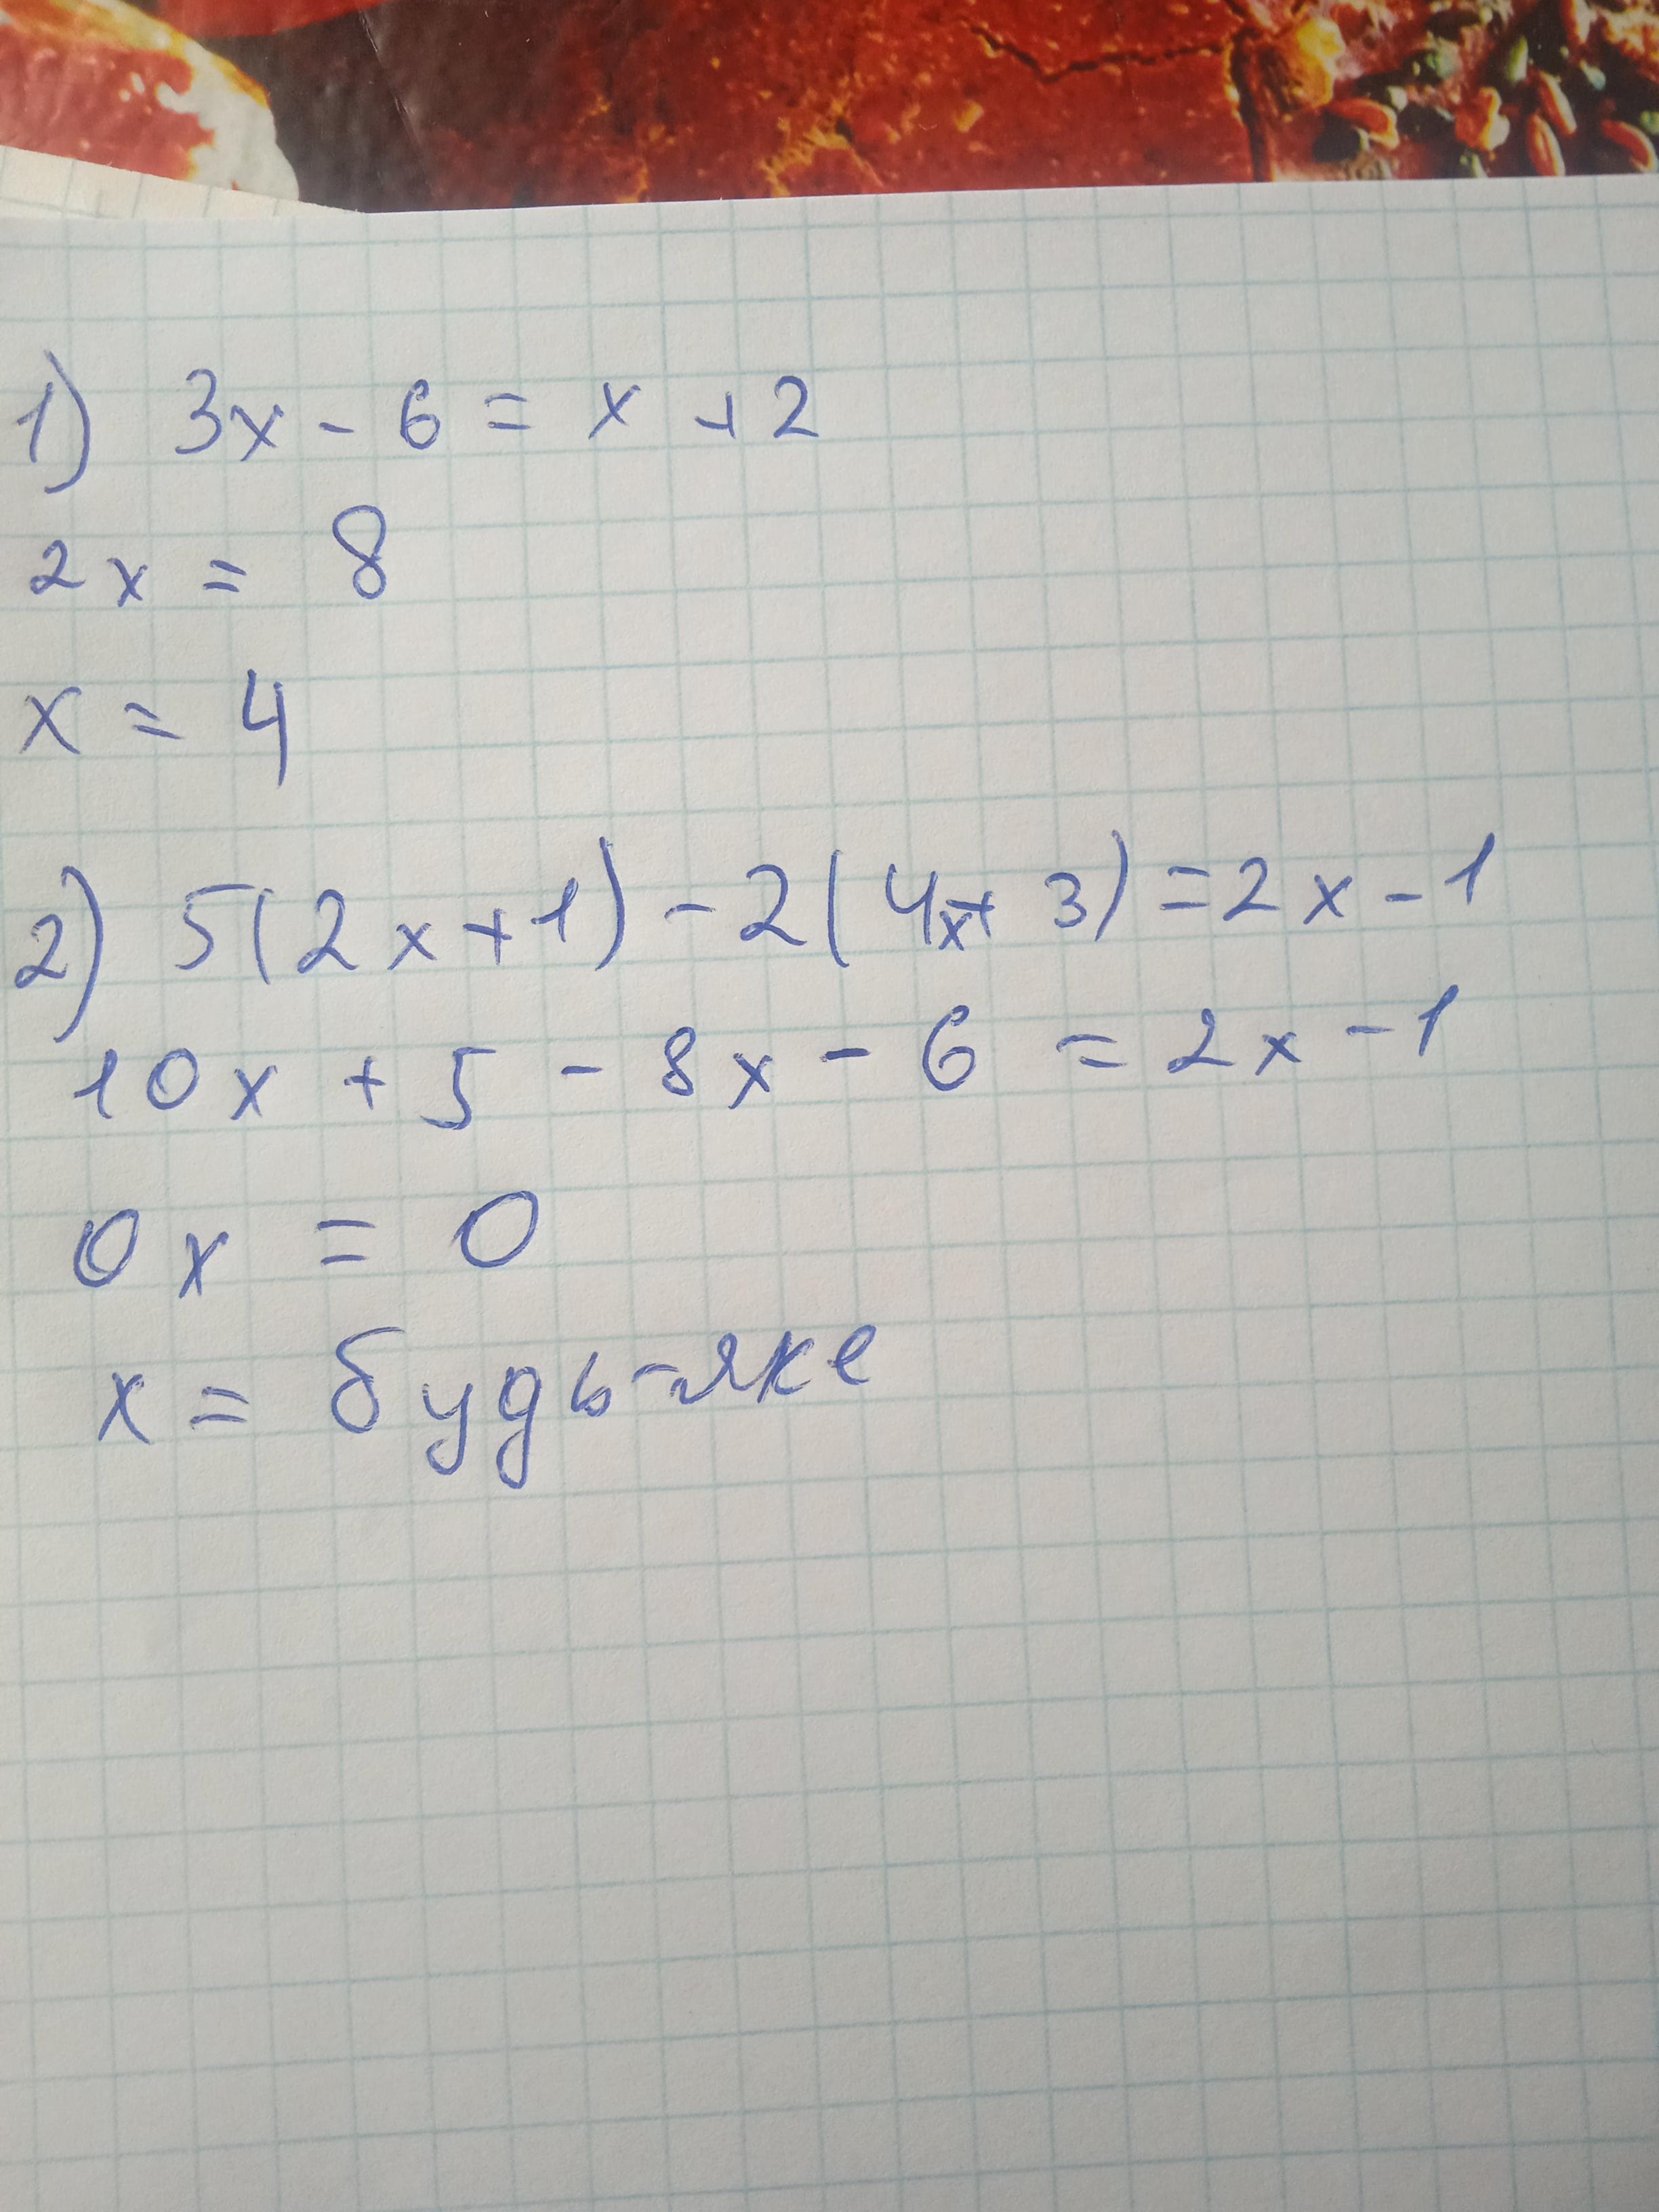 1) 3x - 6 = x + 2
2x = 8
x = 4
2) 5(2x+1) - 2(4x+3) = 2x - 1
10x + 5 - 8x - 6 = 2x - 1
0x = 0
x = будь-яке